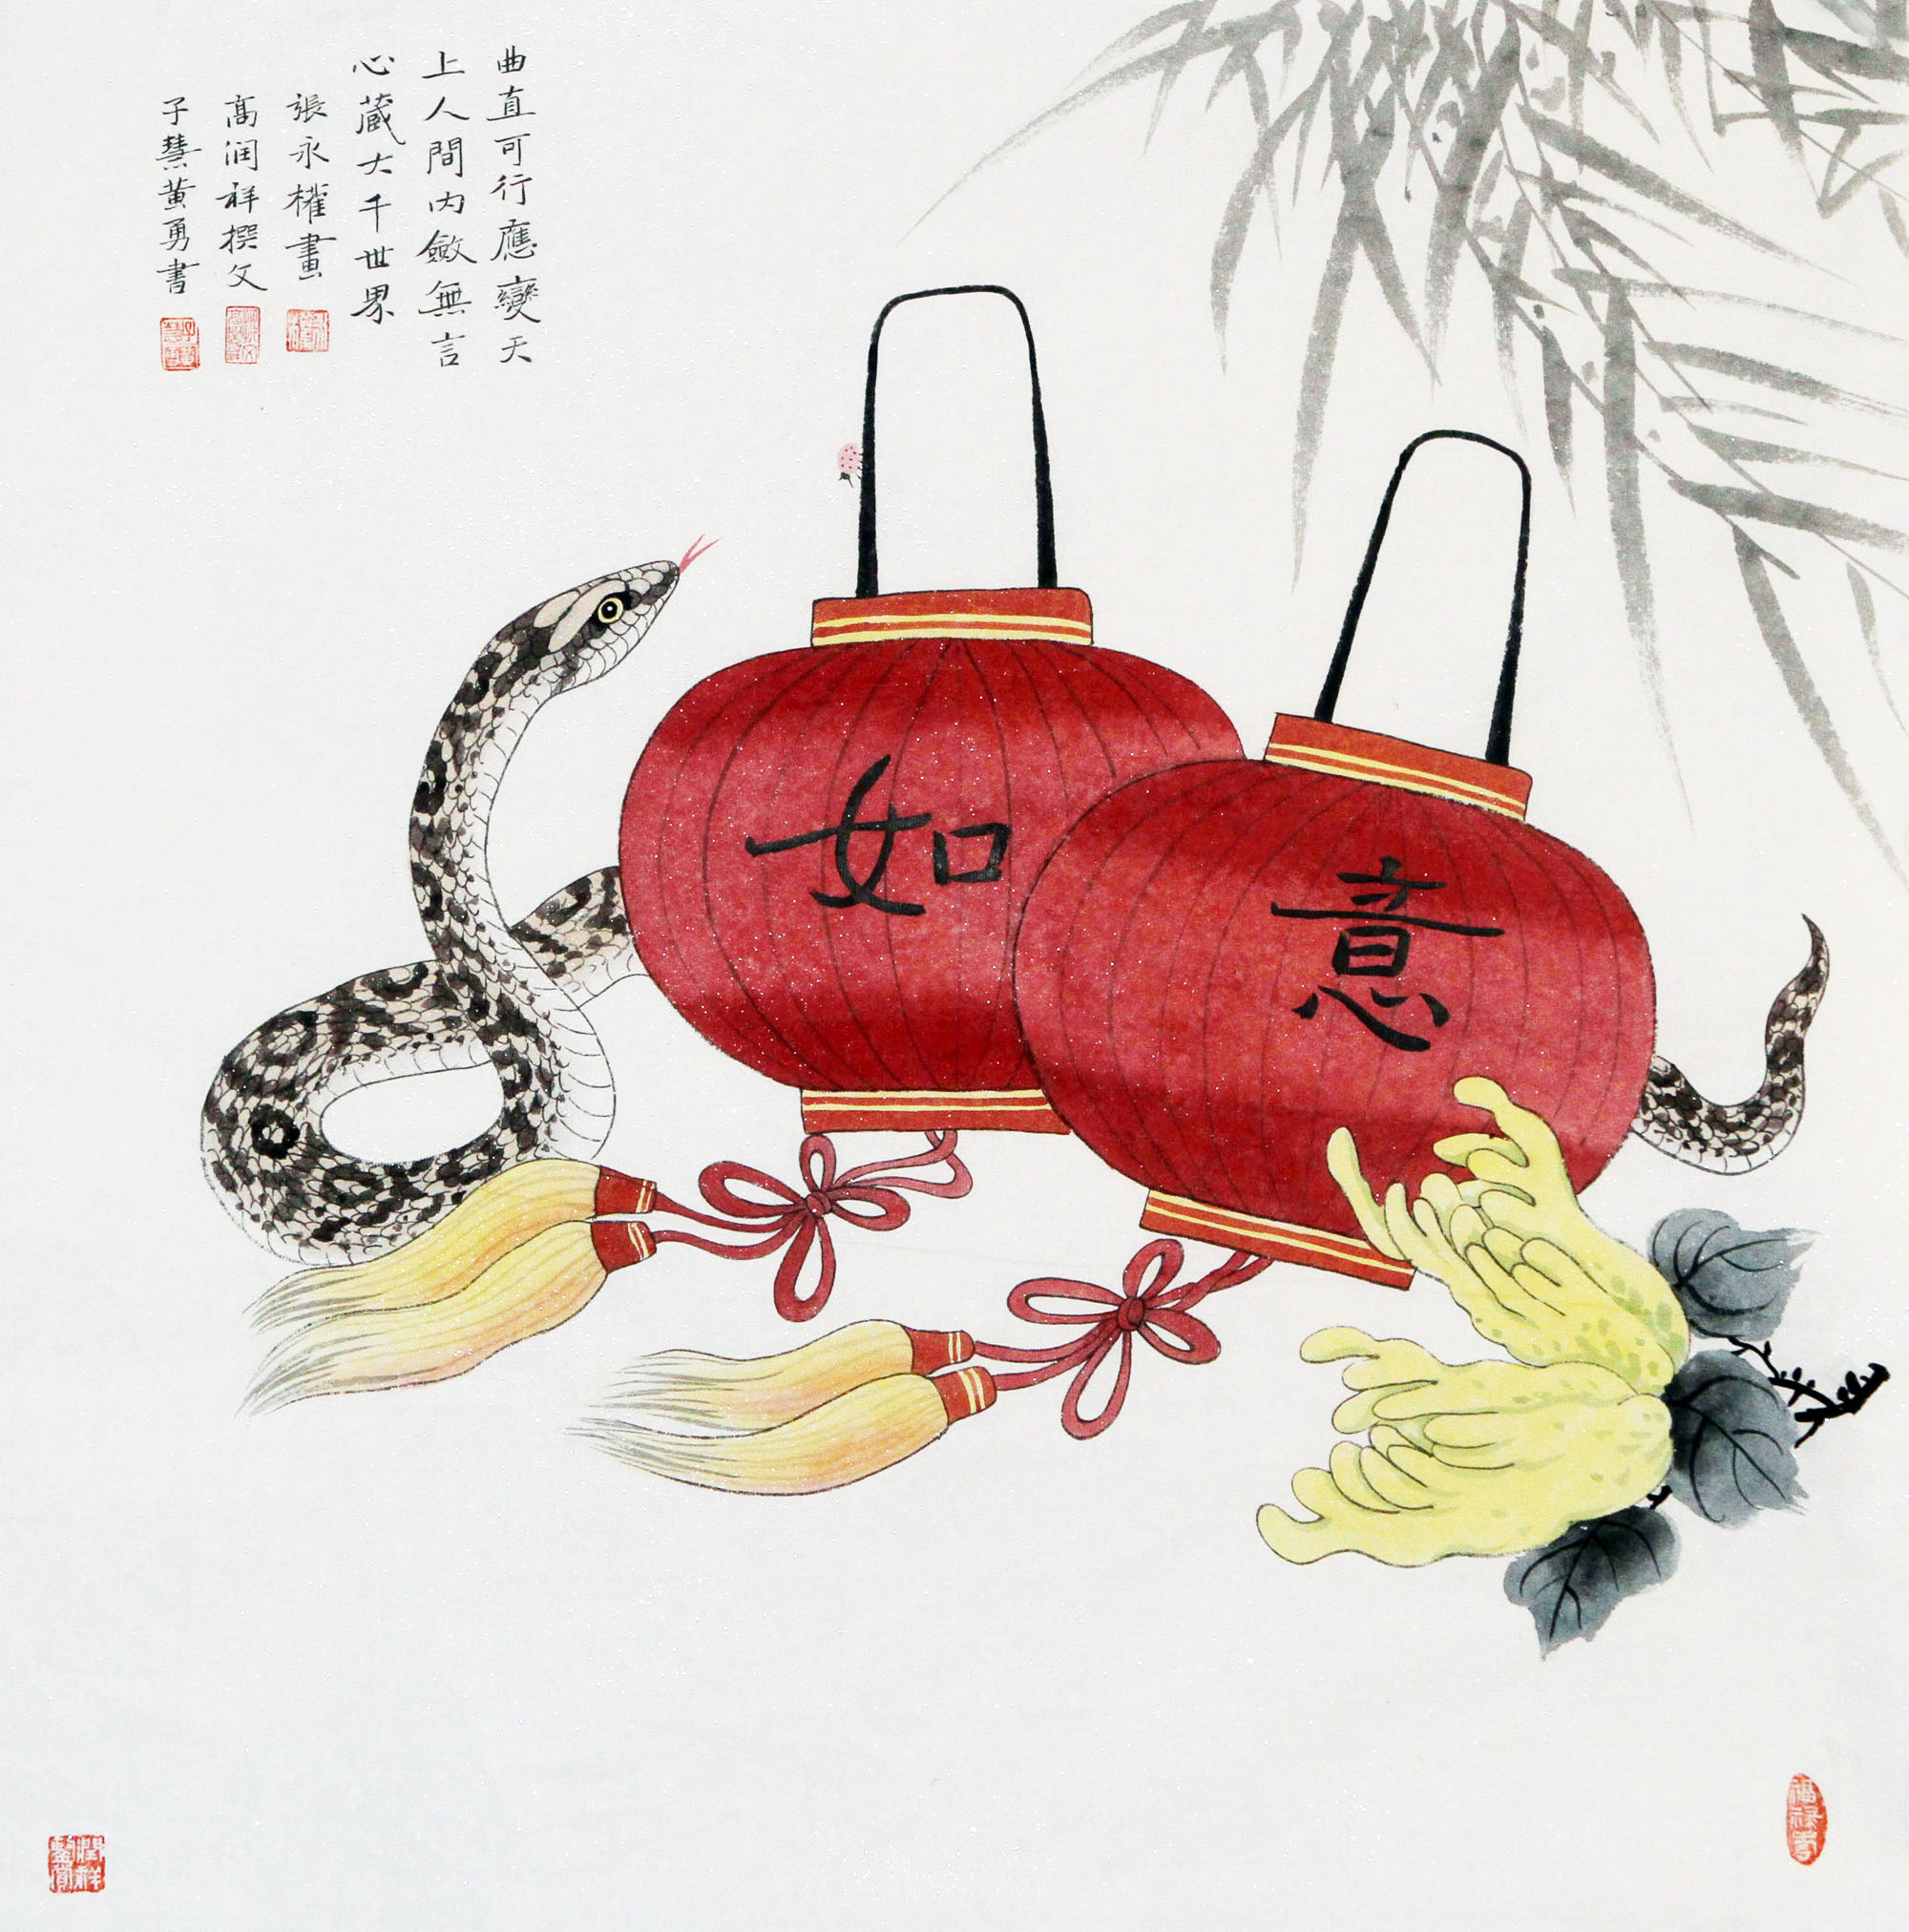 曲直可行應變天
上人間内斂無言
心藏大千世界
張永權畫
高润祥撰文
子慧黄勇書
如
意
潤祥
鑒賞